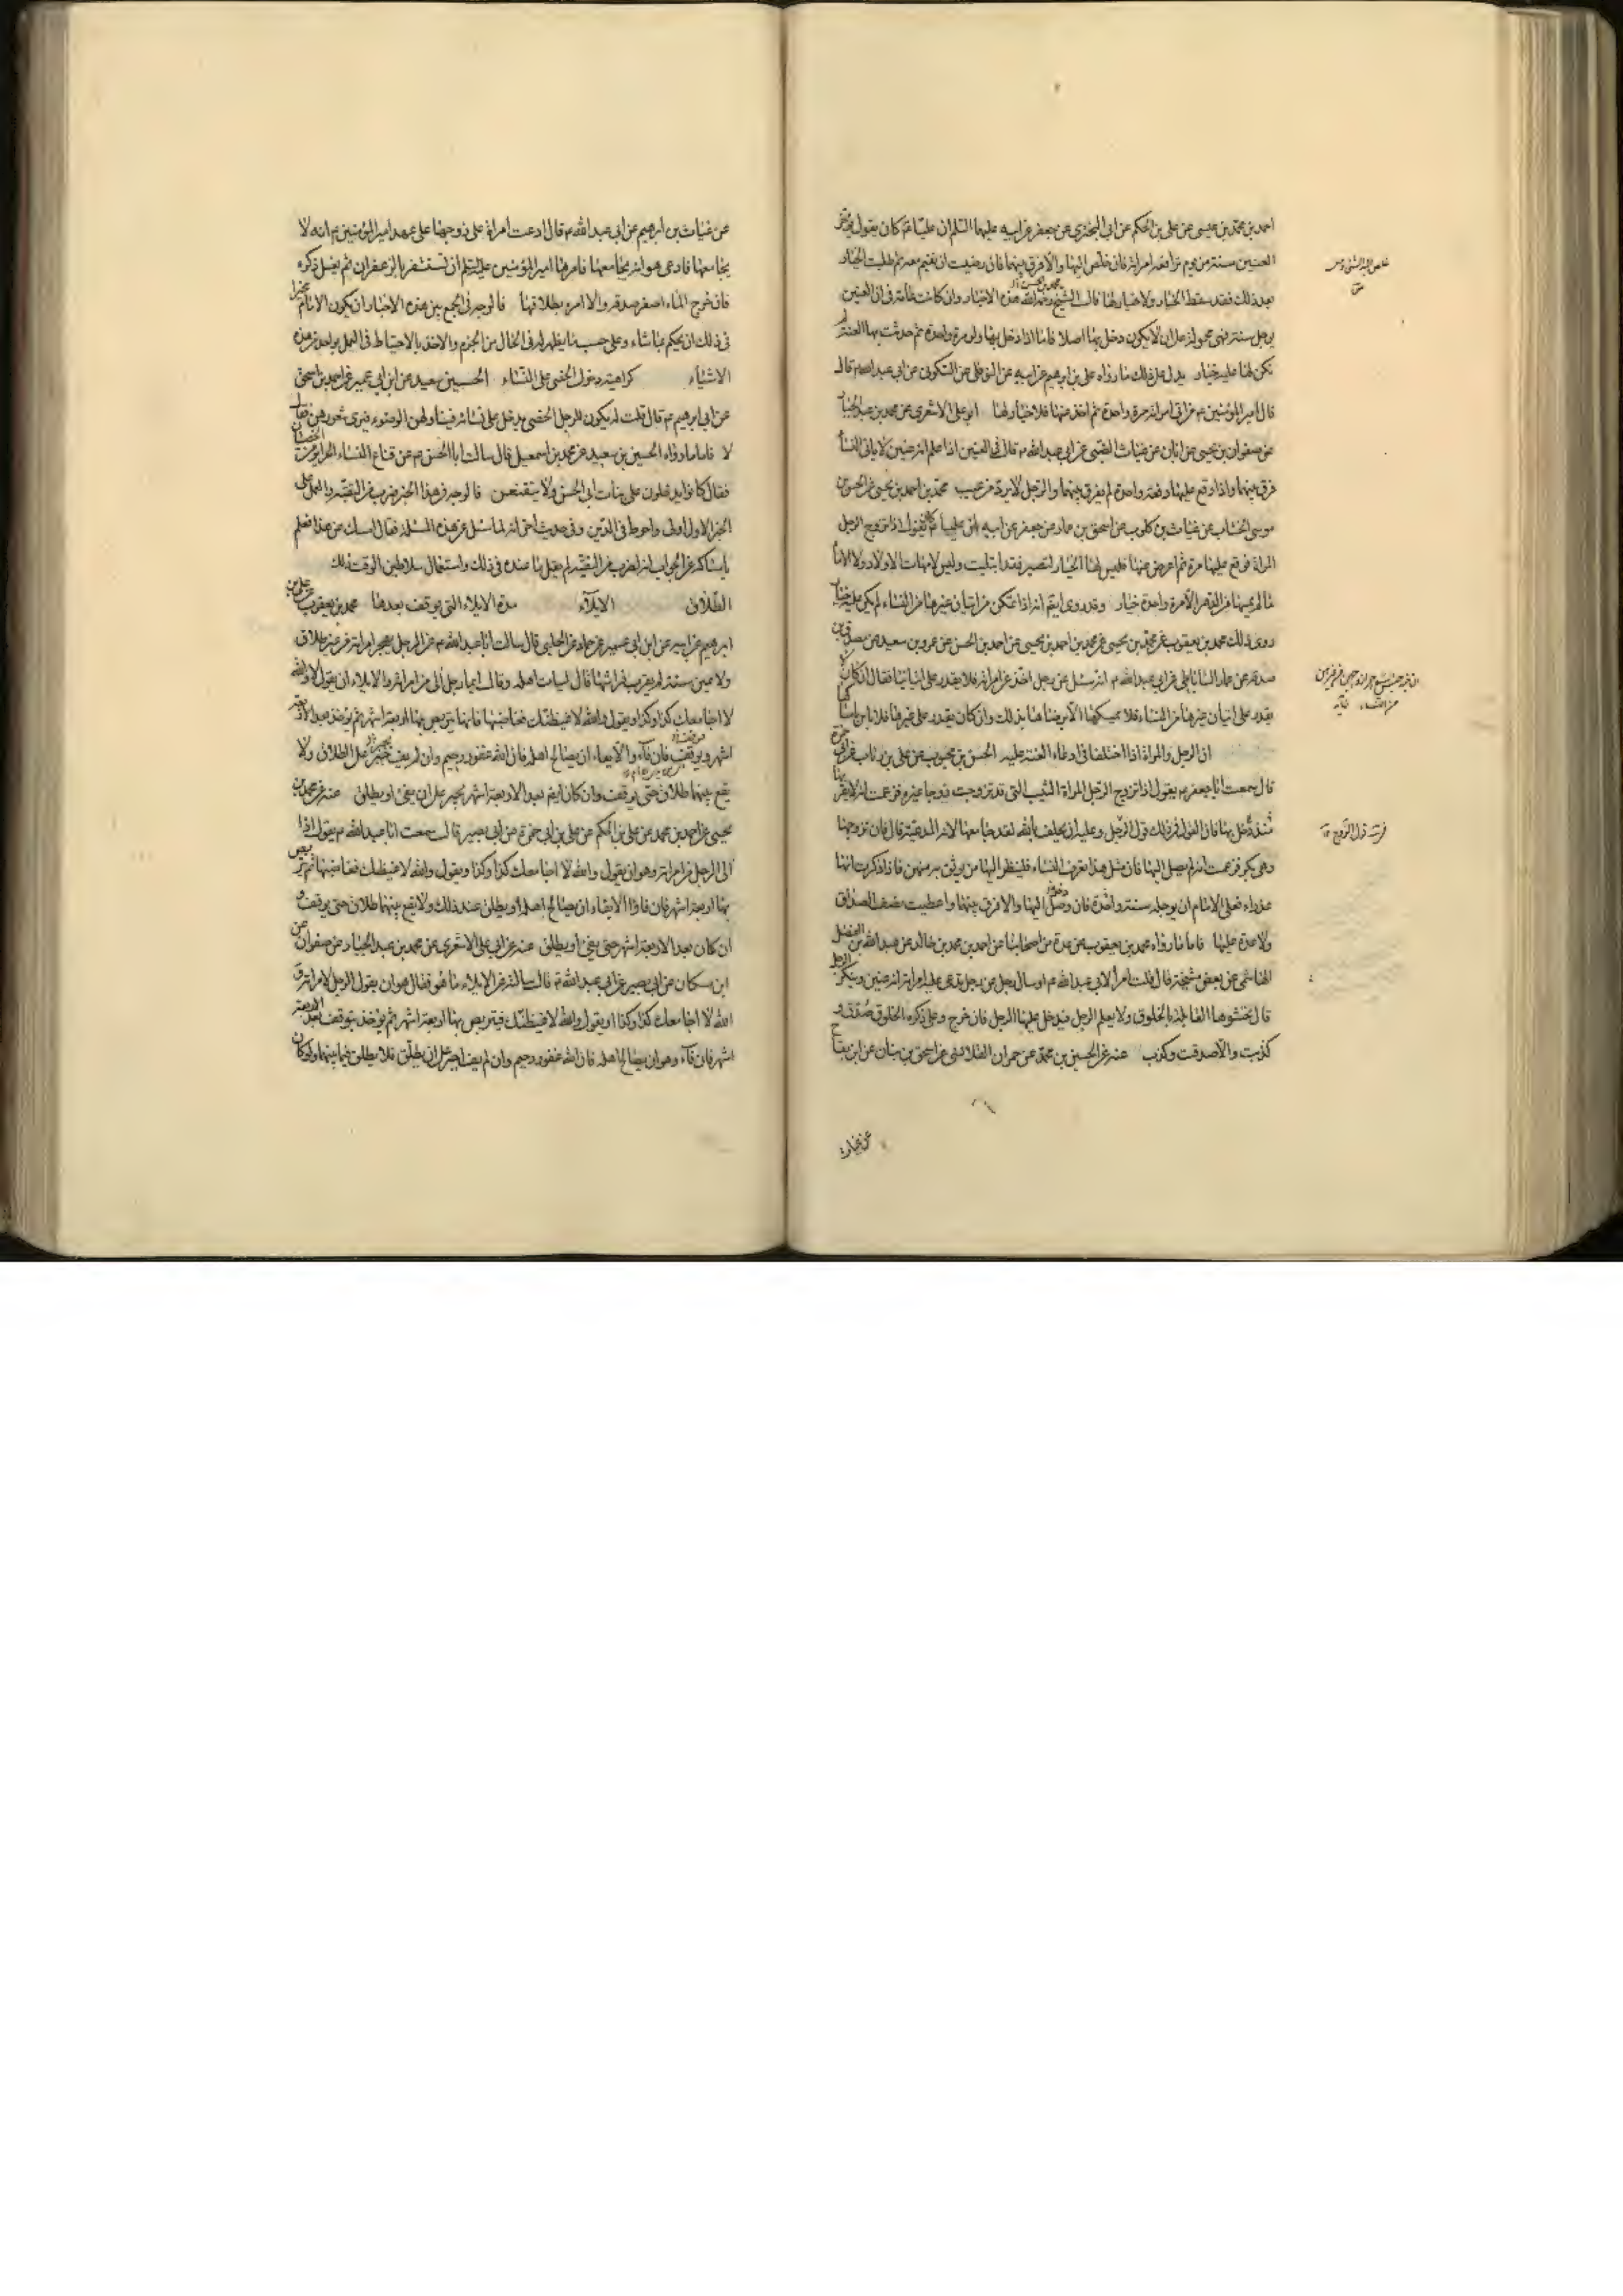 احمد بن محمد بن عيسى عن على بن الحكم عن ابى البخترى عن جعفر عن ابيه عليهما السلم ان عليا ع كان يقول يؤخر
العنين سنة من يوم ترافعه امراته فان خلص اليها والا فرق بينهما فان رضيت ان يقيم معه ثم طلبت الخيار
بعد ذلك فقد سقط الخيار ولا خيار لها قال الشيخ رحمه الله هذه الاخبار وان كانت عامة فى ان العنين
يؤجل سنة فهى محمولة على ان لا يكون دخل بها اصلا فاما اذا دخل بها ولو مرة واحدة ثم حدثت بها العنة لم
تكن لها عليه خيار يدل على ذلك ما رواه على بن ابراهيم عن ابيه عن النوفلى عن السكونى عن ابى عبد الله ع قال
قال امير المؤمنين ع من اتى امراته مرة واحدة ثم اخذ عنها فلا خيار لها ابو على الاشعرى عن محمد بن عبد الجبار
عن صفوان بن يحيى عن ابان عن غياث الضبى عن ابى عبد الله ع قال فى العنين اذا علم انه عنين لا ياتى النسا
فرق بينهما واذا وقع عليها دفعة واحدة لم يفرق بينهما والرجل لا يرد من عيب محمد بن احمد بن يحيى عن الحسن بن
موسى الخشاب عن غياث بن كلوب عن اسحق بن عمار عن جعفر عن ابيه ان عليا ع كان يقول اذا تزوج الرجل
المراة فوقع عليها مرة ثم اعرض عنها فليس لها الخيار لتصبر فقد ابتليت وليس لامهات الاولاد ولا الاما
ما لم يمسها من الدهر الا مرة واحدة خيار وقد روى ايضم انه اذا تمكن من اتيان غيرها من النساء لم يكن عليه خيار
روى ذلك محمد بن يعقوب عن محمد بن يحيى عن محمد بن احمد بن يحيى عن احمد بن الحسن عن عمرو بن سعيد عن مصدق بن
صدقة عن عمار الساباطى عن ابى عبد الله ع انه سئل عن رجل اخذ عن امراته فلا يقدر على اتيانها فقال ان كان لا
يقدر على اتيان غيرها من النساء فلا يمسكها الا برضاها بذلك وان كان يقدر على غيرها فلا باس بامساكها
ان الرجل والمراة اذا اختلفا فى ادعاء العنة عليه الحسن بن محبوب عن على بن رئاب عن ابى حمزة
قال سمعت ابا جعفر ع يقول اذا تزوج الرجل المراة الثيب التى قد تزوجت زوجا غيره فزعمت انه لا يقربها
منذ دخل بها فان القول فى ذلك قول الرجل وعليه ان يحلف بالله لقد جامعها لانها المدعية قال فان تزوجها
وهى بكر فزعمت انه لم يصل اليها فان مثل هذا يعرف النساء فلينظر اليها من يوثق به منهن فاذا ذكرت انها
عذراء فعلى الامام ان يؤجله سنة واحدة فان وصل اليها والا فرق بينهما واعطيت نصف الصداق
ولا عدة عليها فاما ما رواه محمد بن يعقوب عن عدة من اصحابنا عن احمد بن محمد بن خالد عن عبد الله بن الفضل
الهاشمى عن بعض مشيخته قال قالت امراة لابى عبد الله ع او سال رجل عن رجل يدعى عليه امراته انه عنين وينكر الرجل
قال تحشوها القابلة بالخلوق ولا يعلم الرجل فيدخل عليها الرجل فان خرج وعلى ذكره الخلوق صدق و
كذبت والا صدقت وكذب عنه عن الحسين بن محمد عن حمران القلانسى عن اسحق بن بنان عن ابن بقاح
عن غياث
فرقت قول الزوج
عن غياث بن ابرهيم عن ابى عبد الله ع قال ادعت امراة على زوجها على عهد امير المؤمنين ع انه لا
يجامعها وادعى هو انه يجامعها فامرها امير المؤمنين عليه السلم ان تستثفر بالزعفران ثم يغسل ذكره
فان خرج الماء اصفر صدقه والا امره بطلاقها فالوجه فى الجمع بين هذه الاخبار ان يكون الامام مخيرا
فى ذلك ان يحكم بما شاء وعلى حسب ما يظهر له فى الحال من الحزم والاخذ بالاحتياط فى العمل بواحد من هذه
الاشياء كراهية دخول الخصى على النساء الحسين بن سعيد عن ابن ابى عمير عن احمد بن اسحق
عن ابى ابرهيم ع قال قلت له يكون للرجل الخصى يدخل على نسائه فيناولهن الوضوء فيرى شعورهن فقال
لا فاما ما رواه الحسين بن سعيد عن محمد بن اسمعيل قال سالت ابا الحسن ع عن قناع النساء الحراير من الخصيان
فقال كانوا يدخلون على بنات ابى الحسن ولا يتقنعن فالوجه فى هذا الخبر ضرب من التقية والعمل على
الخبر الاول اولى واحوط فى الدين وفى حديث اخر انه لما سئل عن هذه المسئلة فقال امسك عن هذا فعلم
بامساكه عن الجواب انه لضرب من التقية لم يقل بما عنده فى ذلك واستعمال سلاطين الوقت ذلك
الطلاق الايلاء مدة الايلاء التى يوقف بعدها محمد بن يعقوب عن على بن
ابرهيم عن ابيه عن ابن ابى عمير عن حماد عن الحلبى قال سالت ابا عبد الله ع عن الرجل يهجر امراته من غير طلاق
ولا يمين سنة لم يقرب فراشها قال ليات اهله وقال ايما رجل الى من امراته والايلاء ان يقول لا والله
لا اجامعك كذا وكذا ويقول والله لا غيضنك ثم يغاضبها فانها تتربص بها اربعة اشهر ثم يؤخذ بعد الاربعة
اشهر ويوقف فان فاء والايفاء ان يصالح اهله فان الله غفور رحيم وان لم يف جبر على الطلاق ولا
يقع بينهما طلاق حتى يوقف وان كان ايضم بعد الاربعة اشهر يجبر على ان يفئ او يطلق عنه عن محمد بن
يحيى عن احمد بن محمد عن على بن الحكم عن على بن ابى حمزة عن ابى بصير قال سمعت ابا عبد الله ع يقول اذا
الى الرجل من امراته وهو ان يقول والله لا اجامعك كذا وكذا ويقول والله لا غيضنك ثم يغاضبها ثم تربص
بها اربعة اشهر فان فاء والايفاء ان يصالح اهله او يطلق عند ذلك ولا يقع بينهما طلاق حتى يوقف و
ان كان بعد الاربعة اشهر حتى يفئ او يطلق عنه عن ابى على الاشعرى عن محمد بن عبد الجبار عن صفوان عن
ابن مسكان عن ابى بصير عن ابى عبد الله ع قال سالته عن الايلاء ما هو فقال هو ان يقول الرجل لامراته و
الله لا اجامعك كذا وكذا او يقول والله لا غيضنك فيتربص بها اربعة اشهر ثم يؤخذ فيوقف بعد الاربعة
اشهر فان فاء وهو ان يصالح اهله فان الله غفور رحيم وان لم يف اجبر على ان يطلق فلا يطلق فيما بينهما ولو كان